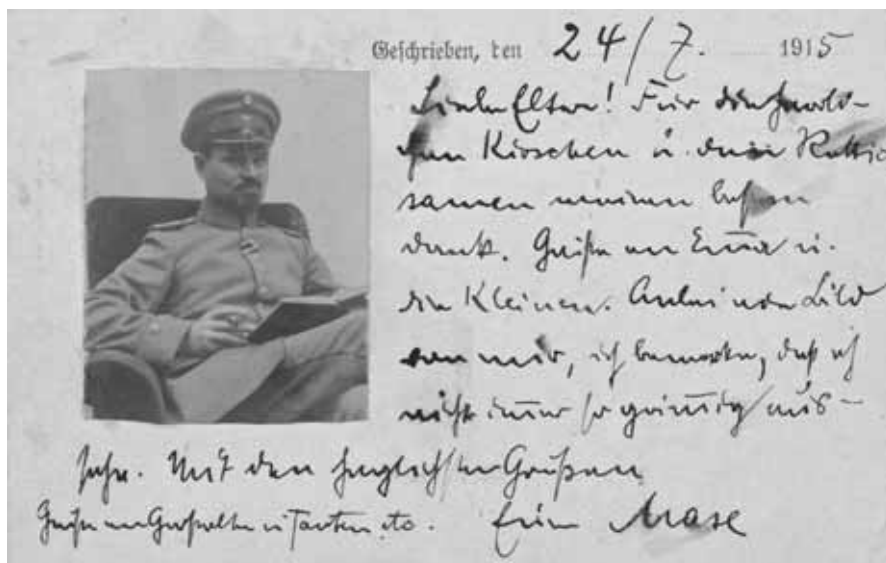 Geschrieben, den 24/7. 1915
Liebe Eltern! Für die herrli-
chen Kirschen u. den Rettig
samen meinen besten
Dank. Grüße an Erna u.
die Kleinen. Anbei von Bild
von mir, ich bemerke, daß ich
nicht immer so grimmig aus-
sehe. Mit den herzlichsten Grüßen
Grüße an Großeltern u Tanten etc. Euer